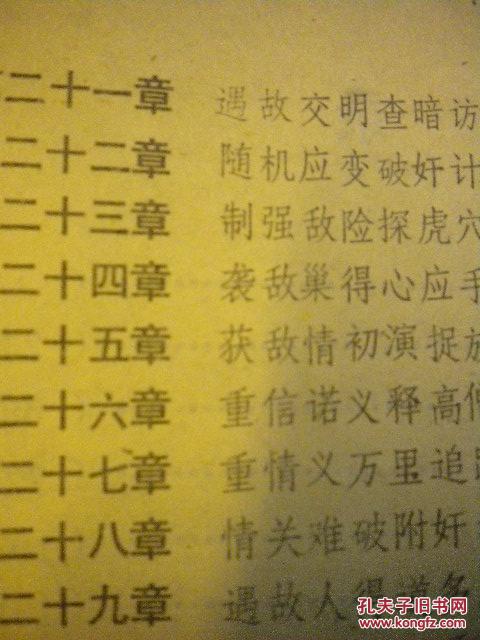 二十一章 遇故交明查暗访
二十二章 随机应变破奸计
二十三章 制强敌险探虎穴
二十四章 袭敌巢得心应手
二十五章 获敌情初演捉放
二十六章 重信诺义释高
二十七章 重情义万里追
二十八章 情关难破附奸
二十九章 遇故人得
孔夫子旧书网
www.kongfz.com